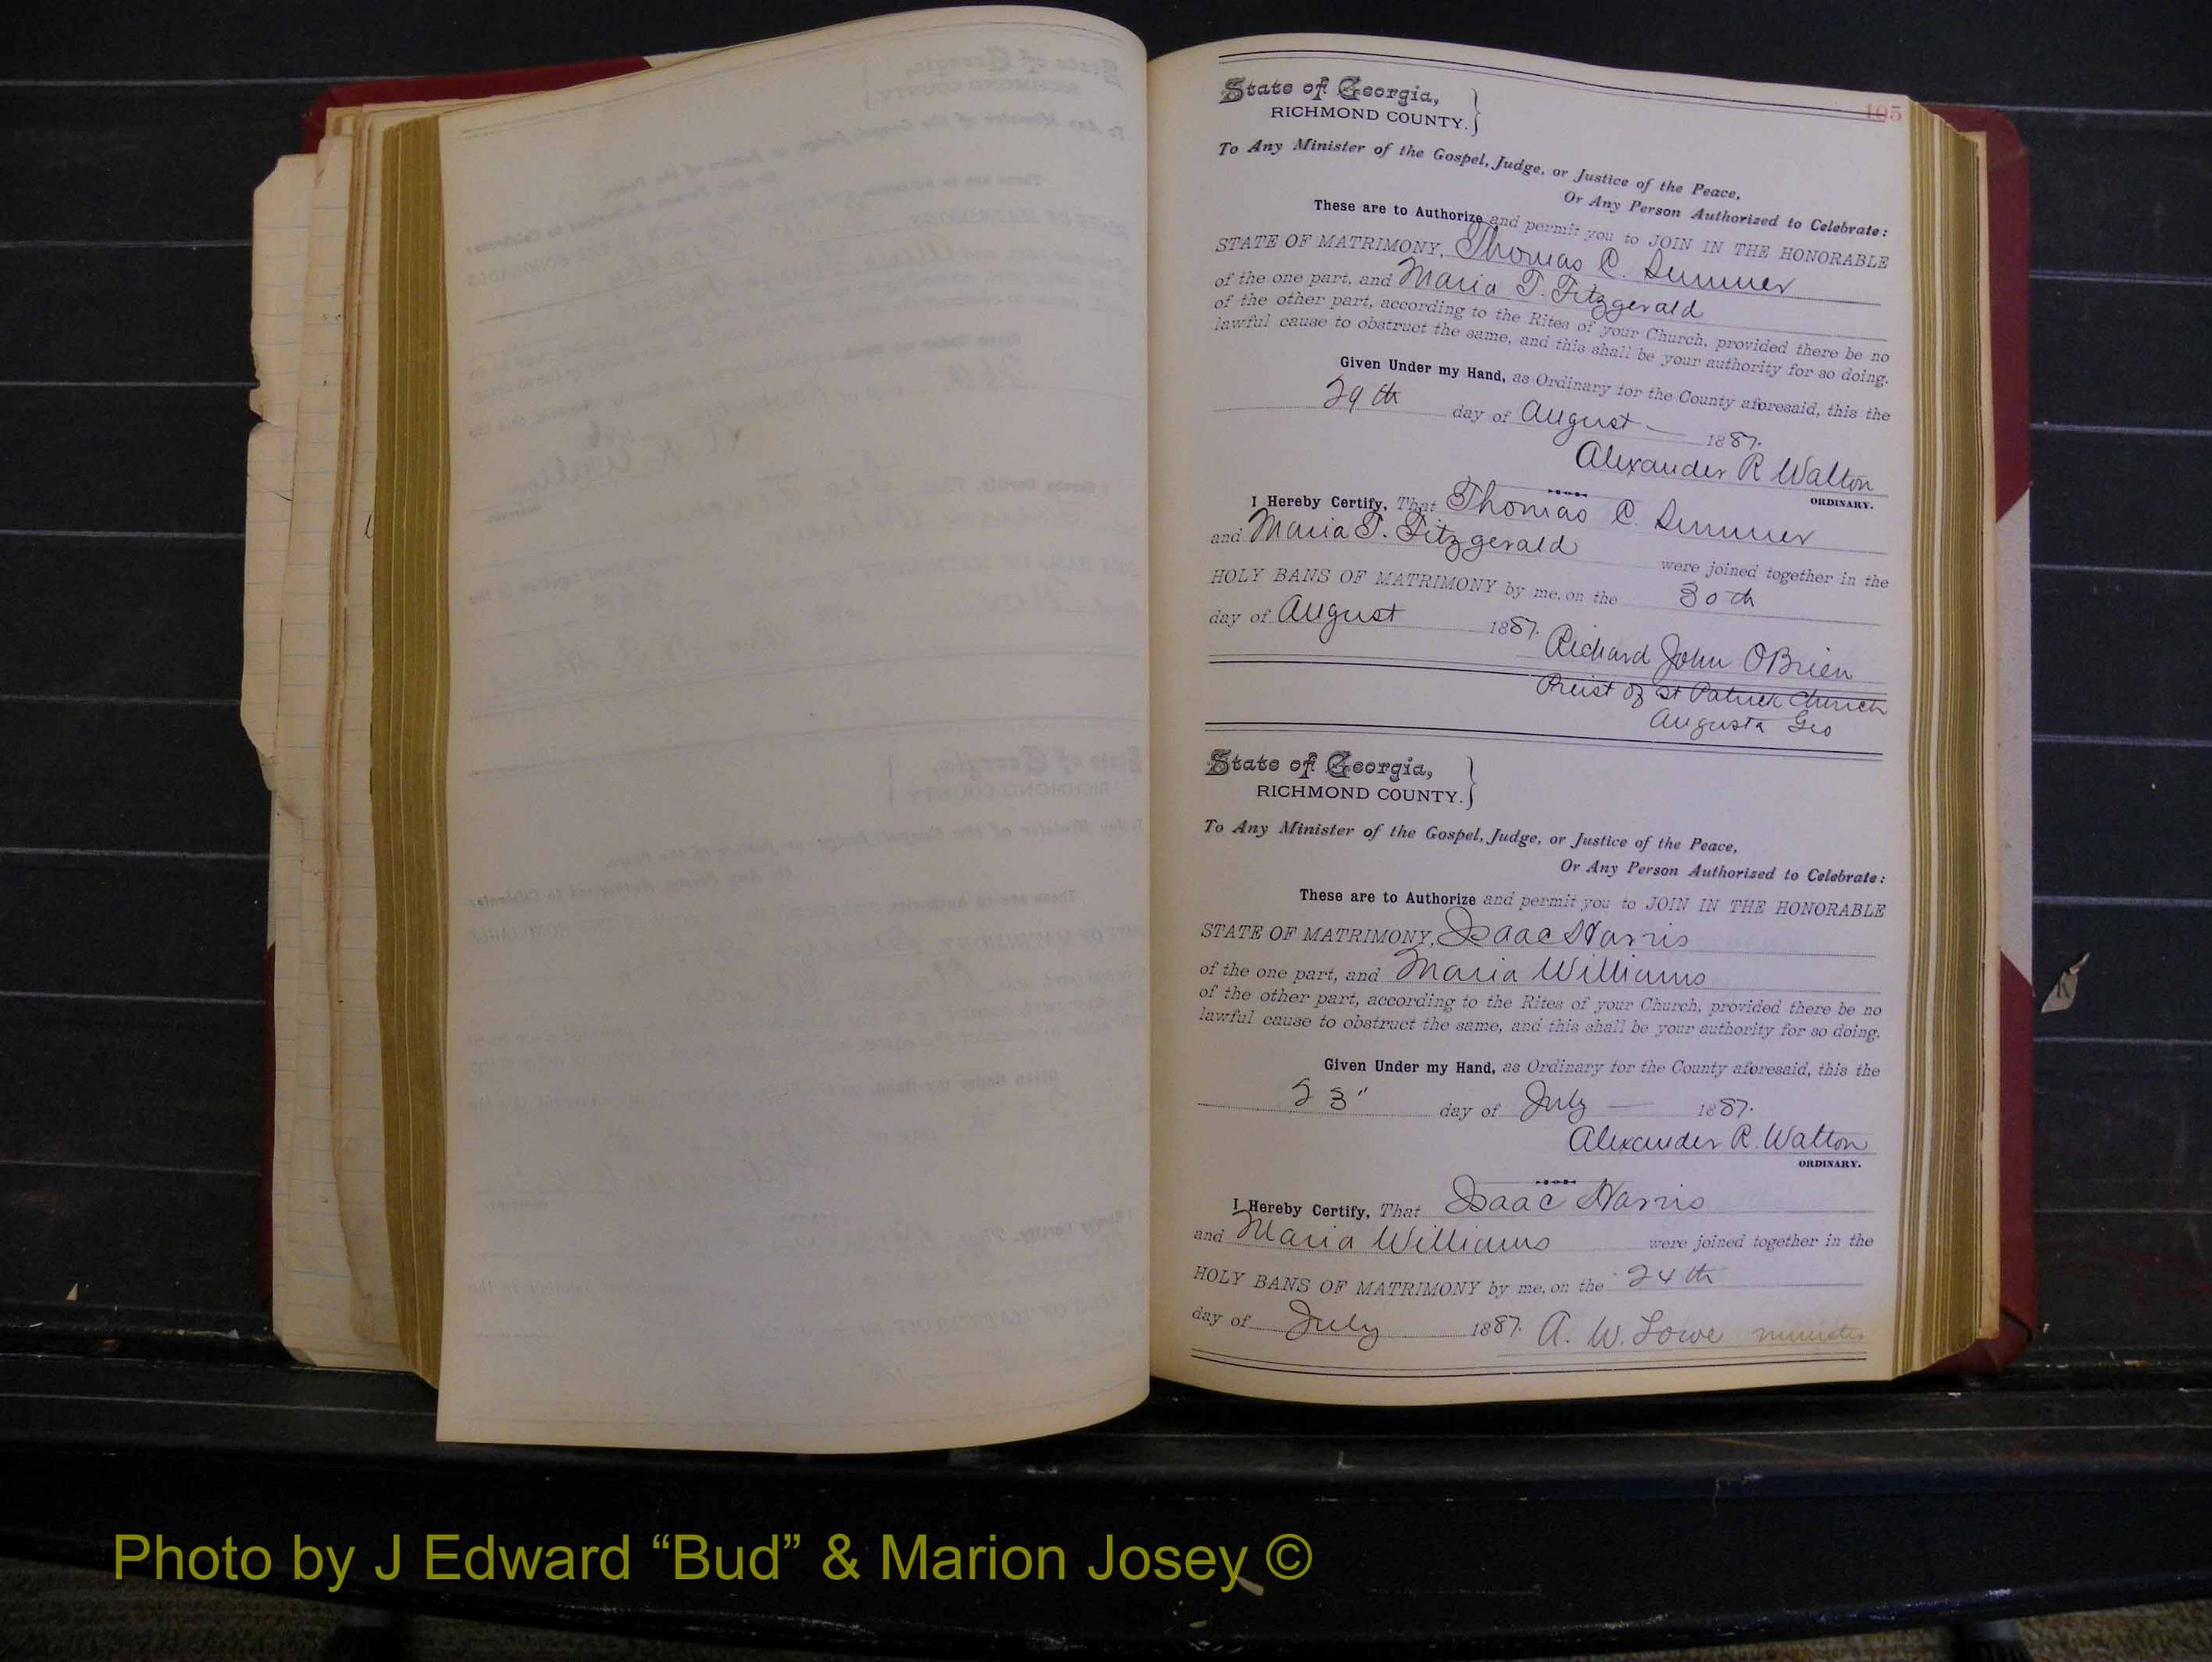 105
State of Georgia,
RICHMOND COUNTY.
To Any Minister of the Gospel, Judge, or Justice of the Peace,
Or Any Person Authorized to Celebrate:
These are to Authorize and permit you to JOIN IN THE HONORABLE
STATE OF MATRIMONY, Thomas C. Summer
of the one part, and Maria T. Fitzgerald
of the other part, according to the Rites of your Church, provided there be no
lawful cause to obstruct the same, and this shall be your authority for so doing.
Given Under my Hand, as Ordinary for the County aforesaid, this the
29th day of August 1887.
Alexander R Walton
ORDINARY.
I Hereby Certify, That Thomas C. Summer
and Maria T. Fitzgerald were joined together in the
HOLY BANS OF MATRIMONY by me, on the 30th
day of August 1887.
Richard John OBrien
Preist of St Patrick Church
Augusta Geo
State of Georgia,
RICHMOND COUNTY.
To Any Minister of the Gospel, Judge, or Justice of the Peace,
Or Any Person Authorized to Celebrate:
These are to Authorize and permit you to JOIN IN THE HONORABLE
STATE OF MATRIMONY, Isaac Harris
of the one part, and Maria Williams
of the other part, according to the Rites of your Church, provided there be no
lawful cause to obstruct the same, and this shall be your authority for so doing.
Given Under my Hand, as Ordinary for the County aforesaid, this the
23" day of July 1887.
Alexander R. Walton
ORDINARY.
I Hereby Certify, That Isaac Harris
and Maria Williams were joined together in the
HOLY BANS OF MATRIMONY by me, on the 24th
day of July 1887. A. W. Lowe minister
Photo by J Edward “Bud” & Marion Josey ©